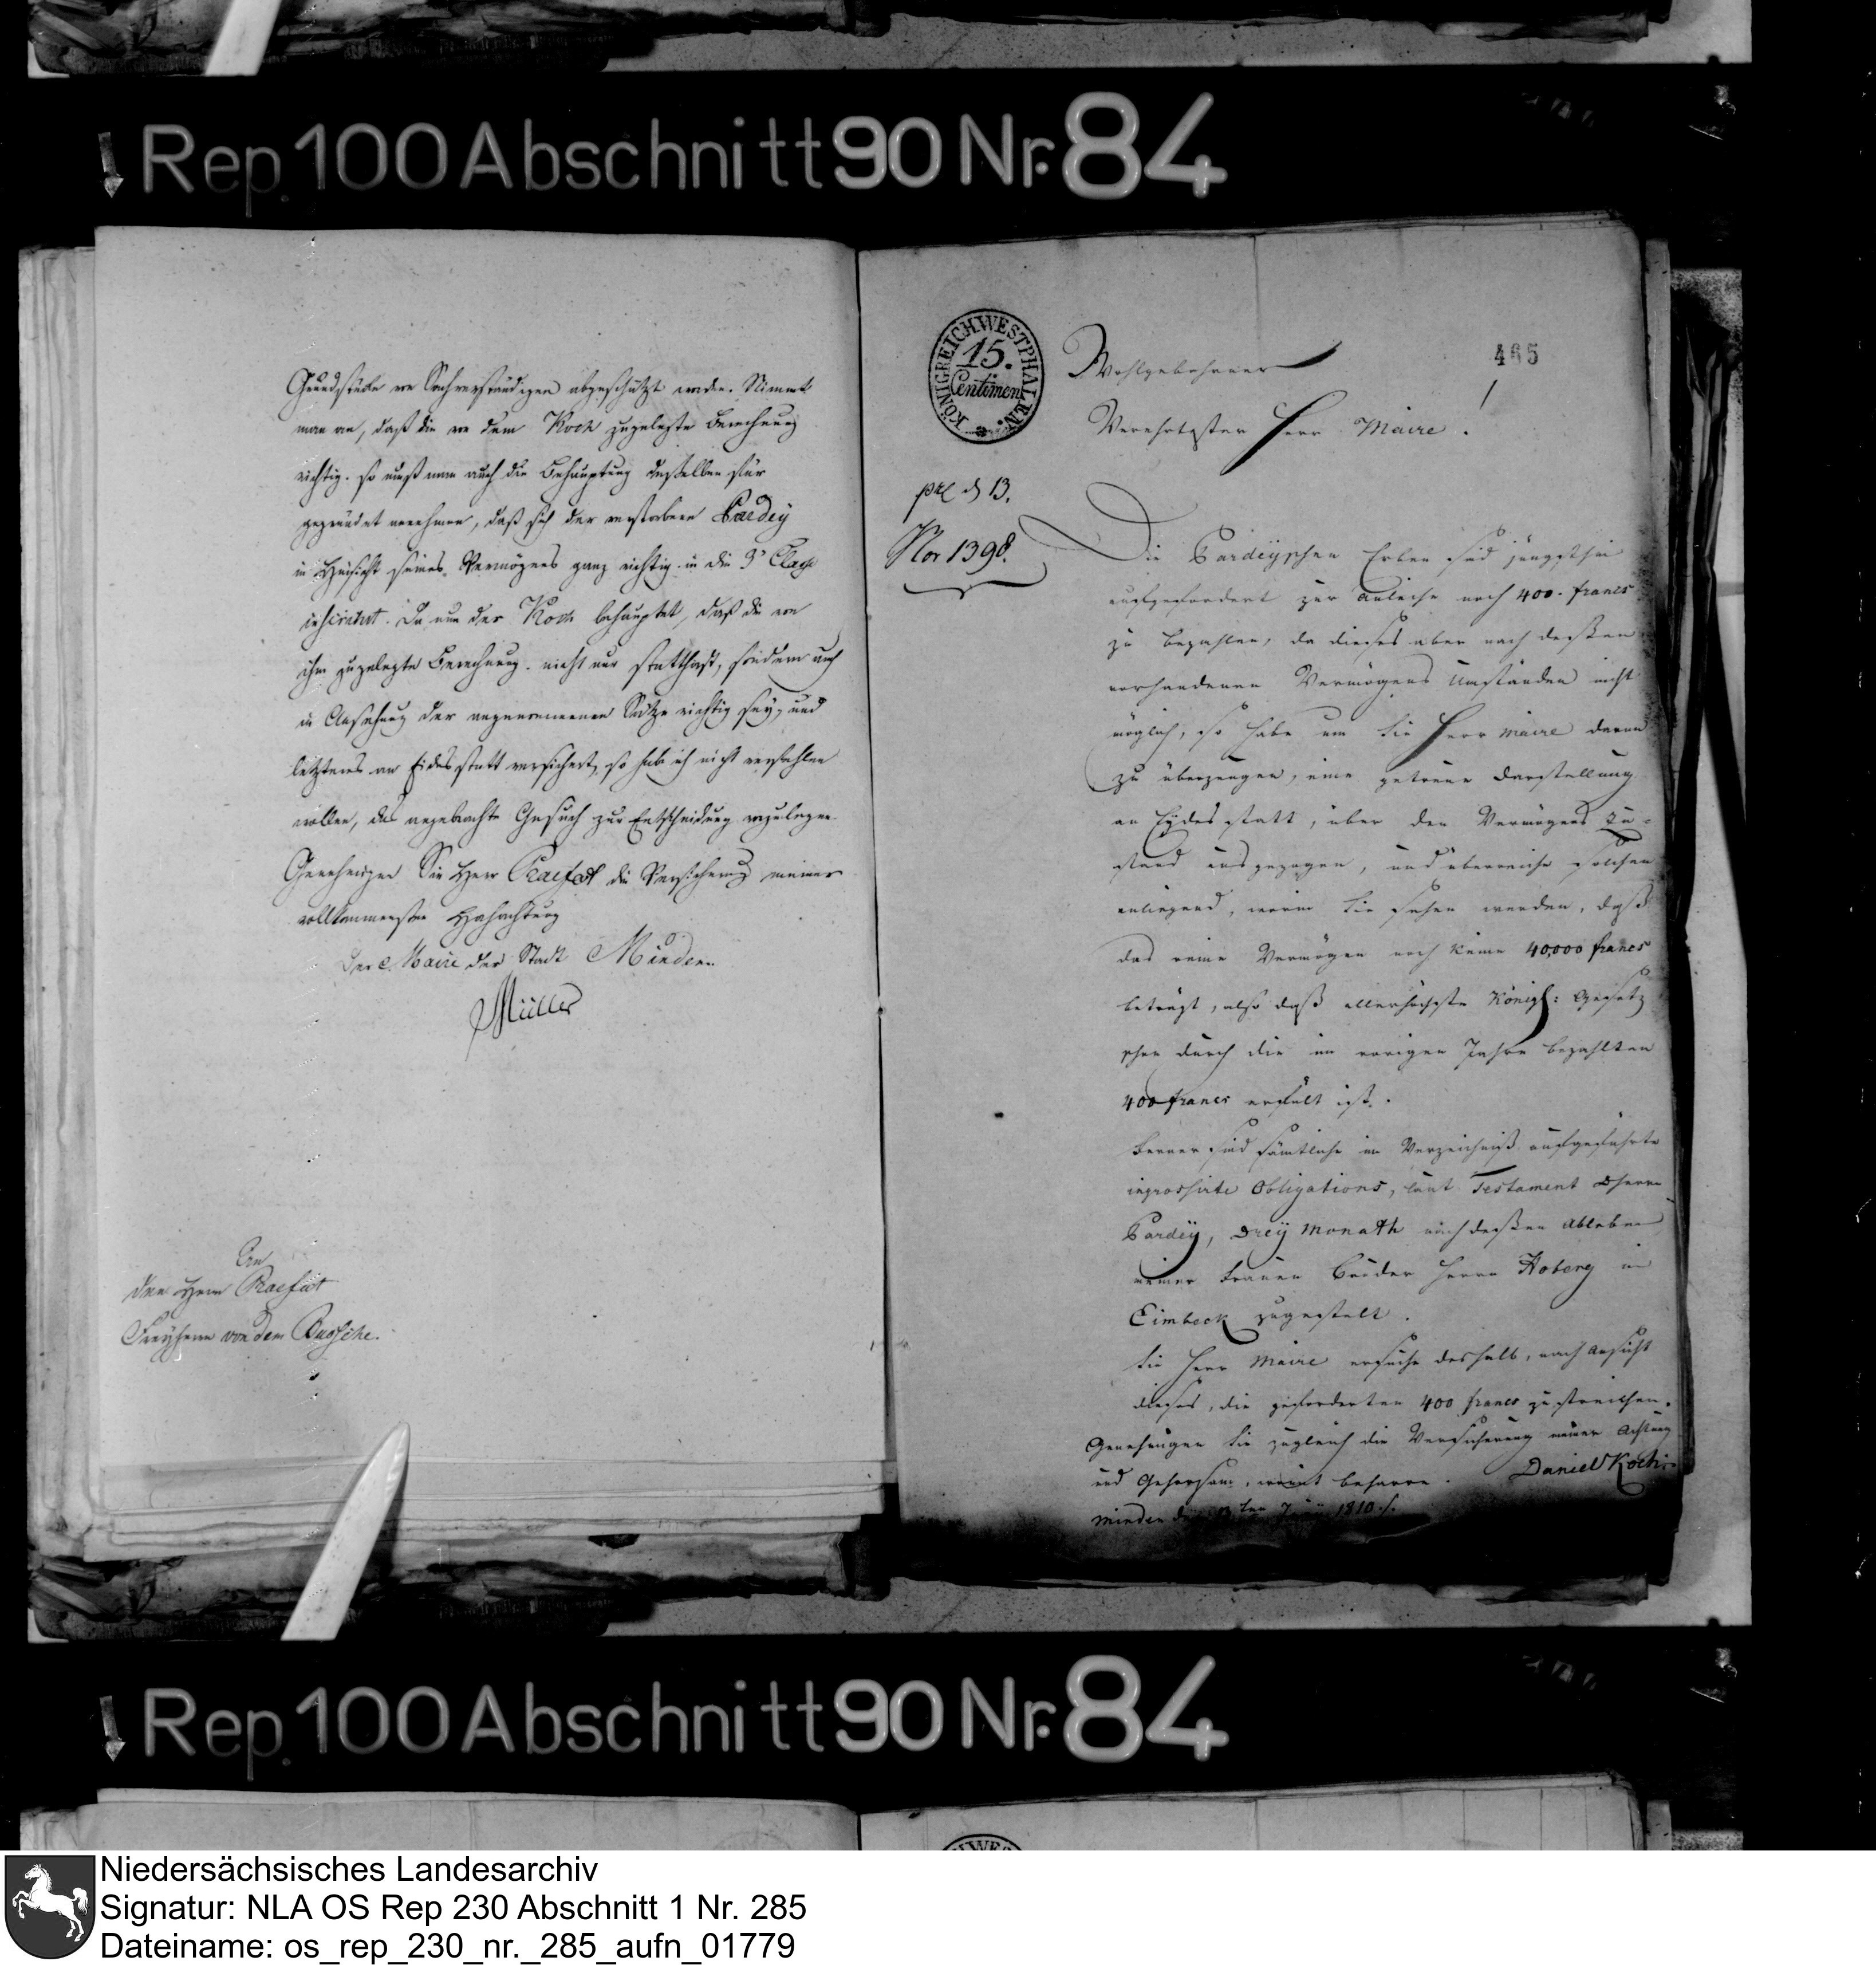 Rep. 100 Abschnitt 90 Nr. 84
Grundstücke von Sachverständigen abgeschätzt worden. Nimmt
man an, daß die von dem Koch zugelegte Berechnung
richtig. so muß man auch die Behauptung desselben für
gegründet annehmen, daß sich der verstorbene Pardey
in Hinsicht seines Vermögens ganz richtig in die 3te Classe
inscribirt. Da nun der Koch behauptet, daß die von
ihm zugelegte Berechnung nicht nur statthaft, sondern auch
in Ansehung der angenommenen Sätze richtig sey, und
letzteres an Eides statt versichert, so hab ich nicht verfehlen
wollen, das angebrachte Gesuch zur Entscheidung vorzulegen.
Genehmigen Sie Herr Praefect die Versicherung meiner
vollkommensten Hochachtung
Der Maire der Stadt Minden.
Müller
An
den Herrn Praefect
Freyherrn von dem Bussche.
KÖNIGREICH WESTPHALEN.
15.
Centimen
465
Wohlgebohrner
Verehrtester Herr Maire.
prs d 13.
Nor 1398.
Die Pardeyschen Erben sind jüngsthin
aufgefordert zur Anleihe noch 400. francs
zu bezahlen, da dieses aber nach dessen
vorhandenen Vermögens Umständen nicht
möglich, so habe um Sie Herr Maire davon
zu überzeugen, eine getreue Darstellung
an Eydes statt, über den Vermögens Zu-
stand ausgezogen, und überreiche solchen
anliegend, worin Sie sehen werden, daß
das reine Vermögen noch keine 40,000 francs
beträgt, also daß allerhöchste Königl: Gesetz
schon durch die im vorigen Jahre bezahlten
400 francs erfült ist.
Ferner sind sämtliche im Verzeichniß aufgeführte
ingrossirte Obligations, laut Testament
Pardey, Drey Monath nach dessen Ableben
meiner Frauen Bruder Herrn Hoberg in
Eimbeck zugestelt.
Sie Herr Maire ersuche deshalb, nach Ansicht
dieses, die geforderten 400 francs zu streichen.
Genehmigen Sie zugleich die Versicherung meiner Achtung
und Gehorsam, womit beharre. Daniel Koch.
Minden den 13ten 1810.
Rep. 100 Abschnitt 90 Nr. 84
Niedersächsisches Landesarchiv
Signatur: NLA OS Rep 230 Abschnitt 1 Nr. 285
Dateiname: os_rep_230_nr._285_aufn_01779